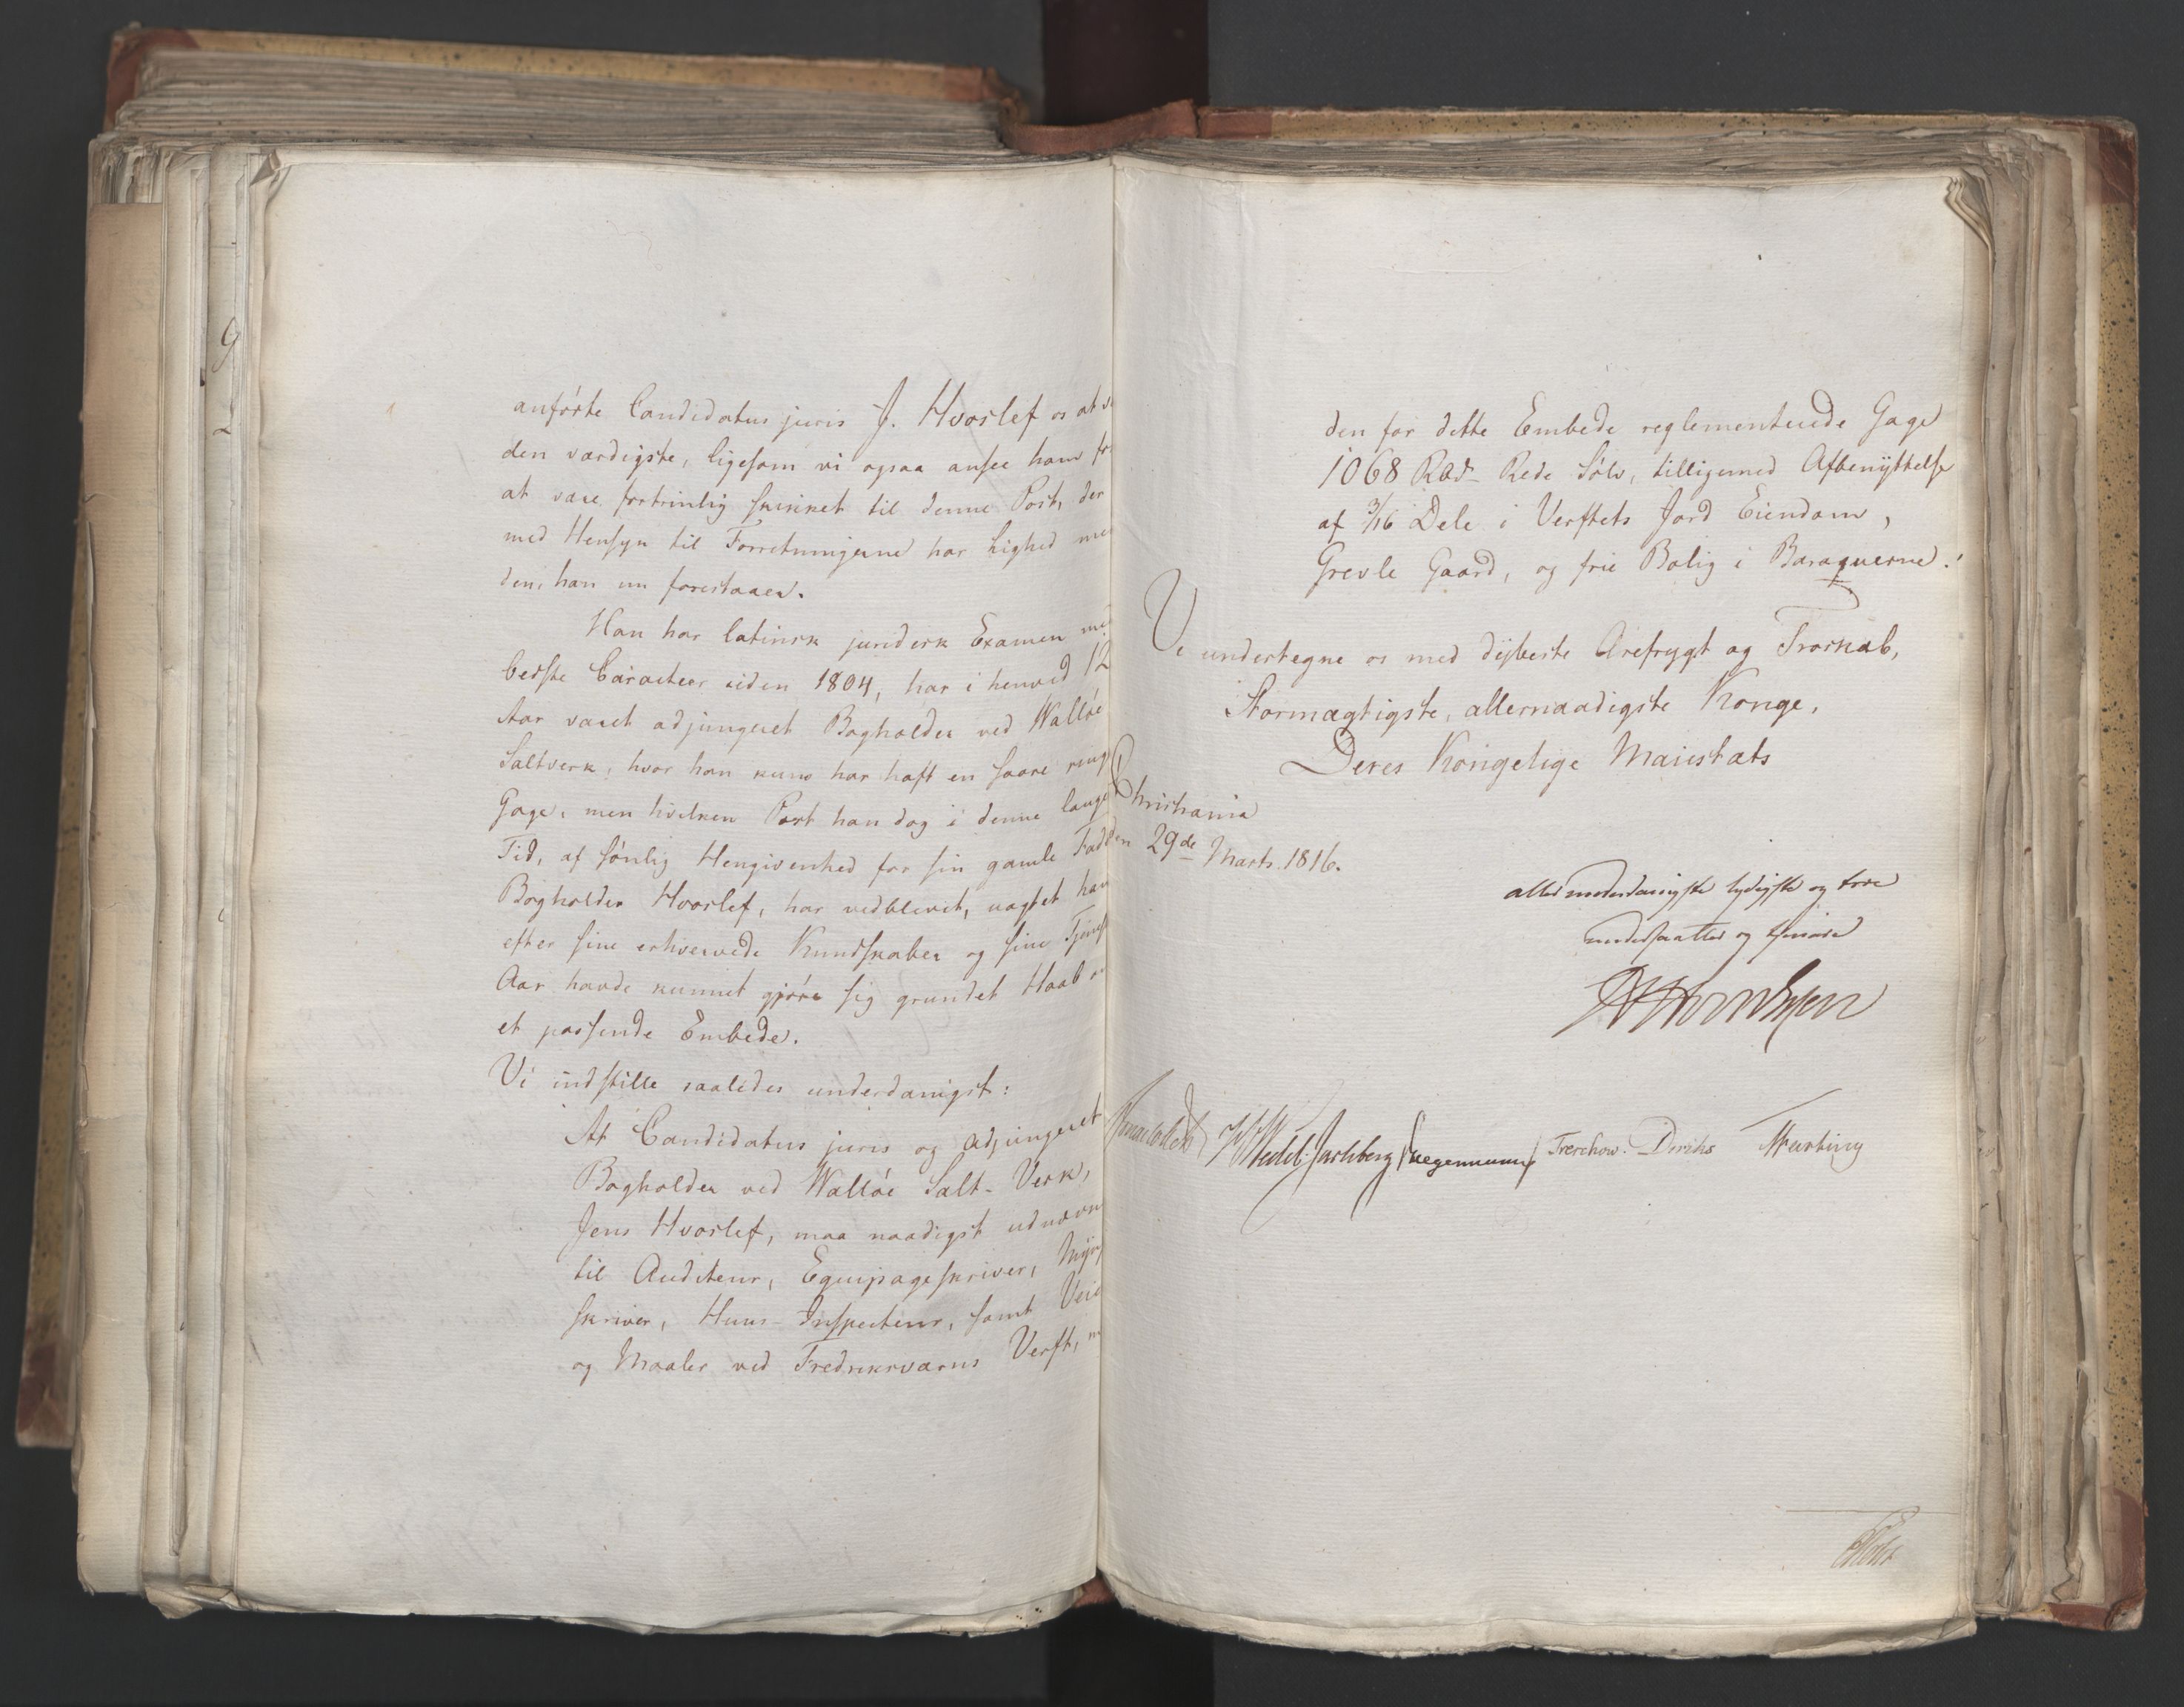 anførte Candidatus juris J. Hvoslef os at v
den værdigste, ligesom vi ogsaa ansee ham fo
at være fortrinlig skikket til denne Post, der
med Hensyn til Forretningerne har Lighed me
den, han nu forestaaer.
Han har latinsk juridisk Examen me
bedste Caracteer siden 1804, har i henved 12
Aar været adjungeret Bogholder ved Walløe
Saltverk, hvor han kuns har haft en saare ring
Gage, men hvilken Post han dog i denne lange
Tid, af sønlig Hengivenhed for sin gamle Fad
Bogholder Hvoslef, har vedblevet, uagtet han
efter sine erhvervede Kundskaber og sine Tjenest
Aar havde kunnet gjøre sig grundet Haab o
et passende Embede.
Vi indstille saaledes underdanigst:
At Candidatus juris og adjungeret
Bogholder ved Walløe Salt-Verk,
Jens Hvoslef, maa naadigst udnævn
til Auditeur, Equipageskriver, Mÿn
skriver, Huus-Inspecteur, samt Veie
og Maaler ved Fredriksværns Verft, m
den for dette Embede reglementerede Gage
1068 Rbd. Rede Sølv, tilligemed Afbenÿttelse
af 3/16 Dele i Verftets Jord Eiendom,
Grevle Gaard, og frie Bolig i Baraquerne.
Vi undertegne os med dÿbeste Ærefrygt og Troskab,
Stormægtigste, allernaadigste Konge,
Deres Kongelige Maiestæts
Christiania
den 29de Marts 1816.
allerunderdanigste lydigste og troe
undersaatter og tjenere
Sommerhielm Wedel-Jarlsberg Hegermann Treschow. Diriks Fasting
Holst